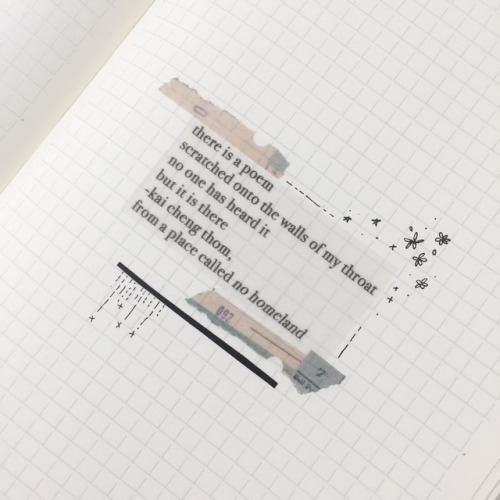 there is a poem
scratched onto the walls of my throat
no one has heard it
but it is there
-kai cheng thom,
from a place called no homeland
092
2